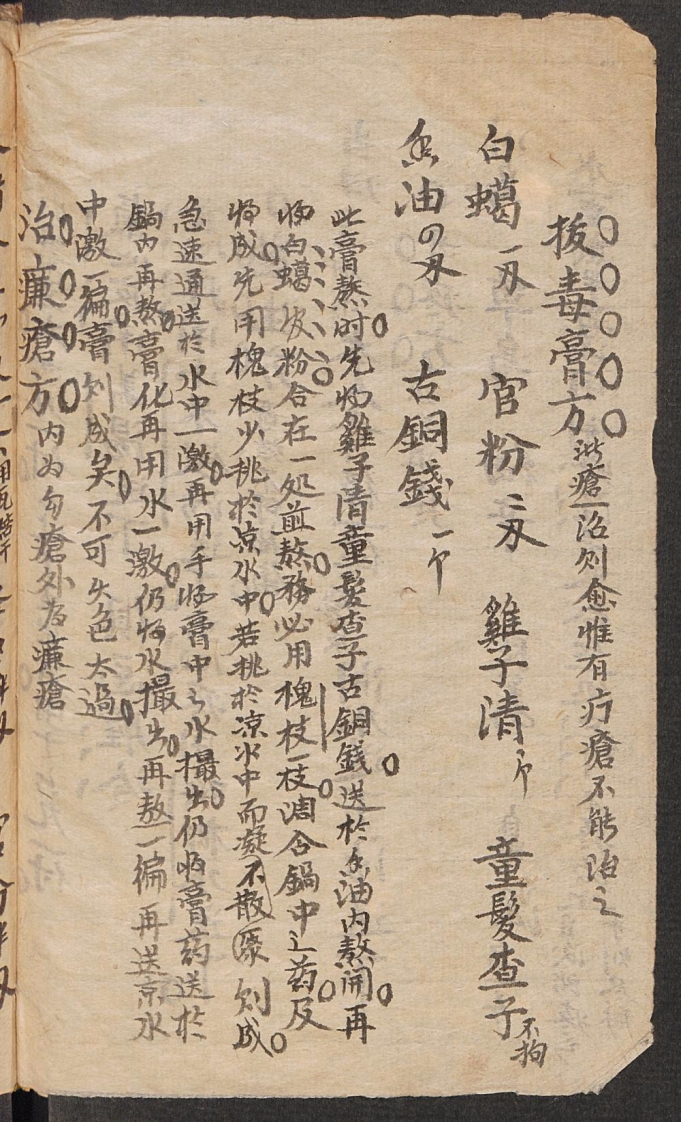 拔毒膏方 諸瘡一治则愈惟有疔瘡不能治之
白蠟一刄 官粉二刄 雞子清一个 童髮查子不拘
香油四刄 古銅錢一个
此膏熬时先将雞子清童髮查子古銅錢送於香油内熬開再
将白蠟官粉合在一处煎熬務必用槐枝一枝调合鍋中之药及
将成先用槐枝少挑於凉水中若挑於凉水中而凝不散团则成
急速通送於水中一激再用手将膏中之水撮出仍将膏药送於
鍋内再熬膏化再用水一激仍将水撮出再熬一徧再送凉水
中激一徧膏则成矣不可失色太過
治臁瘡方 内为勾瘡外为臁瘡